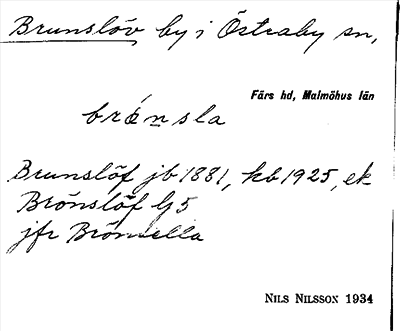 Brunslöv by i Östraby sn,
Färs hd, Malmöhus län
brǿn̲sla
Brunslöf jb 1881, kb 1925, ek
Brönslöf Gj 5
jfr Brönsella
NILS NILSSON 1934